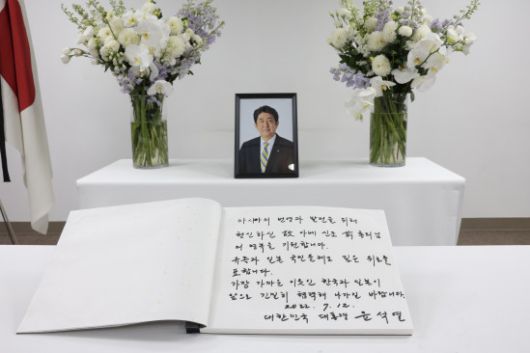 아시아의 번영과 발전을 위해
헌신하신 故 아베 신조 前 총리님
의 명복을 기원합니다.
유족과 일본 국민들에게도 깊은 위로를
표합니다.
가장 가까운 이웃인 한국과 일본이
앞으로 긴밀히 협력해 나가길 바랍니다.
2022. 7. 12.
대한민국 대통령 윤석열